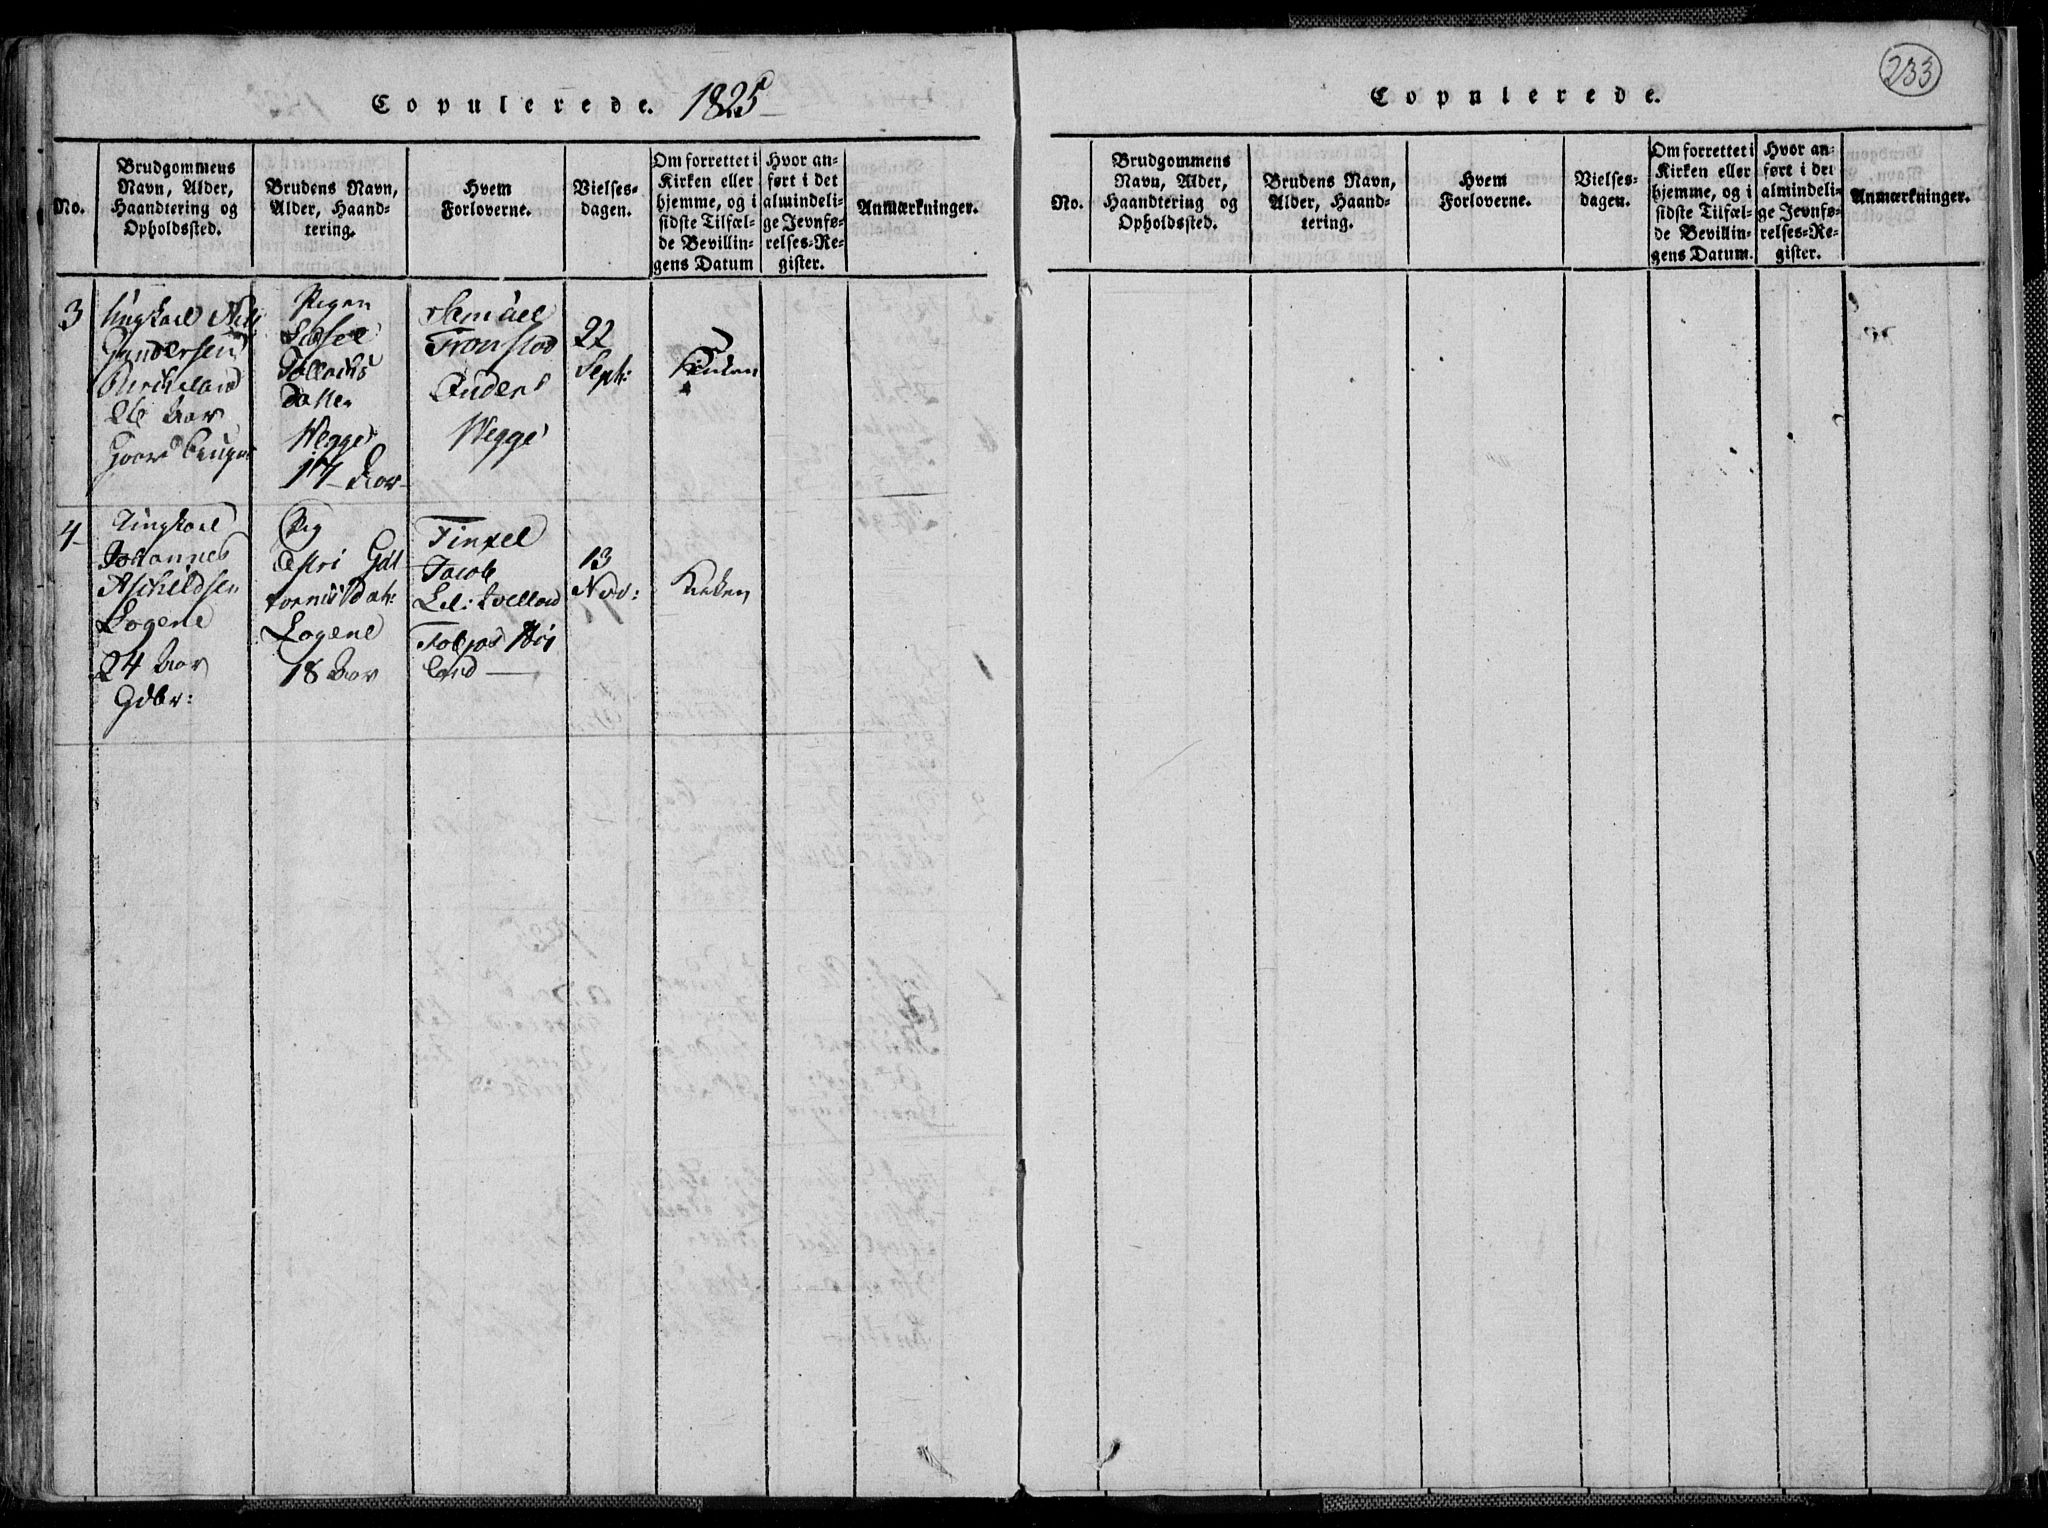 Copulerede. 1825
No.
Brudgommens
Navn, Alder,
Haandtering og
Opholdssted.
Brudens Navn,
Alder, Haand-
tering.
Hvem
Forloverne.
Vielses-
dagen.
Om forrettet i
Kirken eller
hjemme, og i
sidste Tilfæl-
de Bevillin-
gens Datum
Hvor an-
ført i det
almindeli-
ge Jevnfø-
relses-Re-
gister.
Anmærkninger.
3
Ungkarl
Gundersen
Birkeland
26 Aar
Pigen
Tollachs
Datter
Hegge
17 Aar
Samuel
Tronstad
Anders
Hegge
22
Sept:
Kirken
4
Ungkarl
Johannes
Aschildsen
Logene
24 Aar
Gdbr:
Pig
Astri Gdl
Logene
18 Aar
Jacob
Tobjas Høi
land
13
Nov:
Kirken
233
Copulerede.
No.
Brudgommens
Navn, Alder,
Haandtering og
Opholdssted.
Brudens Navn,
Alder, Haand-
tering.
Hvem
Forloverne.
Vielses-
dagen.
Om forrettet i
Kirken eller
hjemme, og i
sidste Tilfæl-
de Bevillin-
gens Datum.
Hvor an-
føre i det
almindeli-
ge Jevnfø-
relses-Re-
gister.
Anmærkninger.